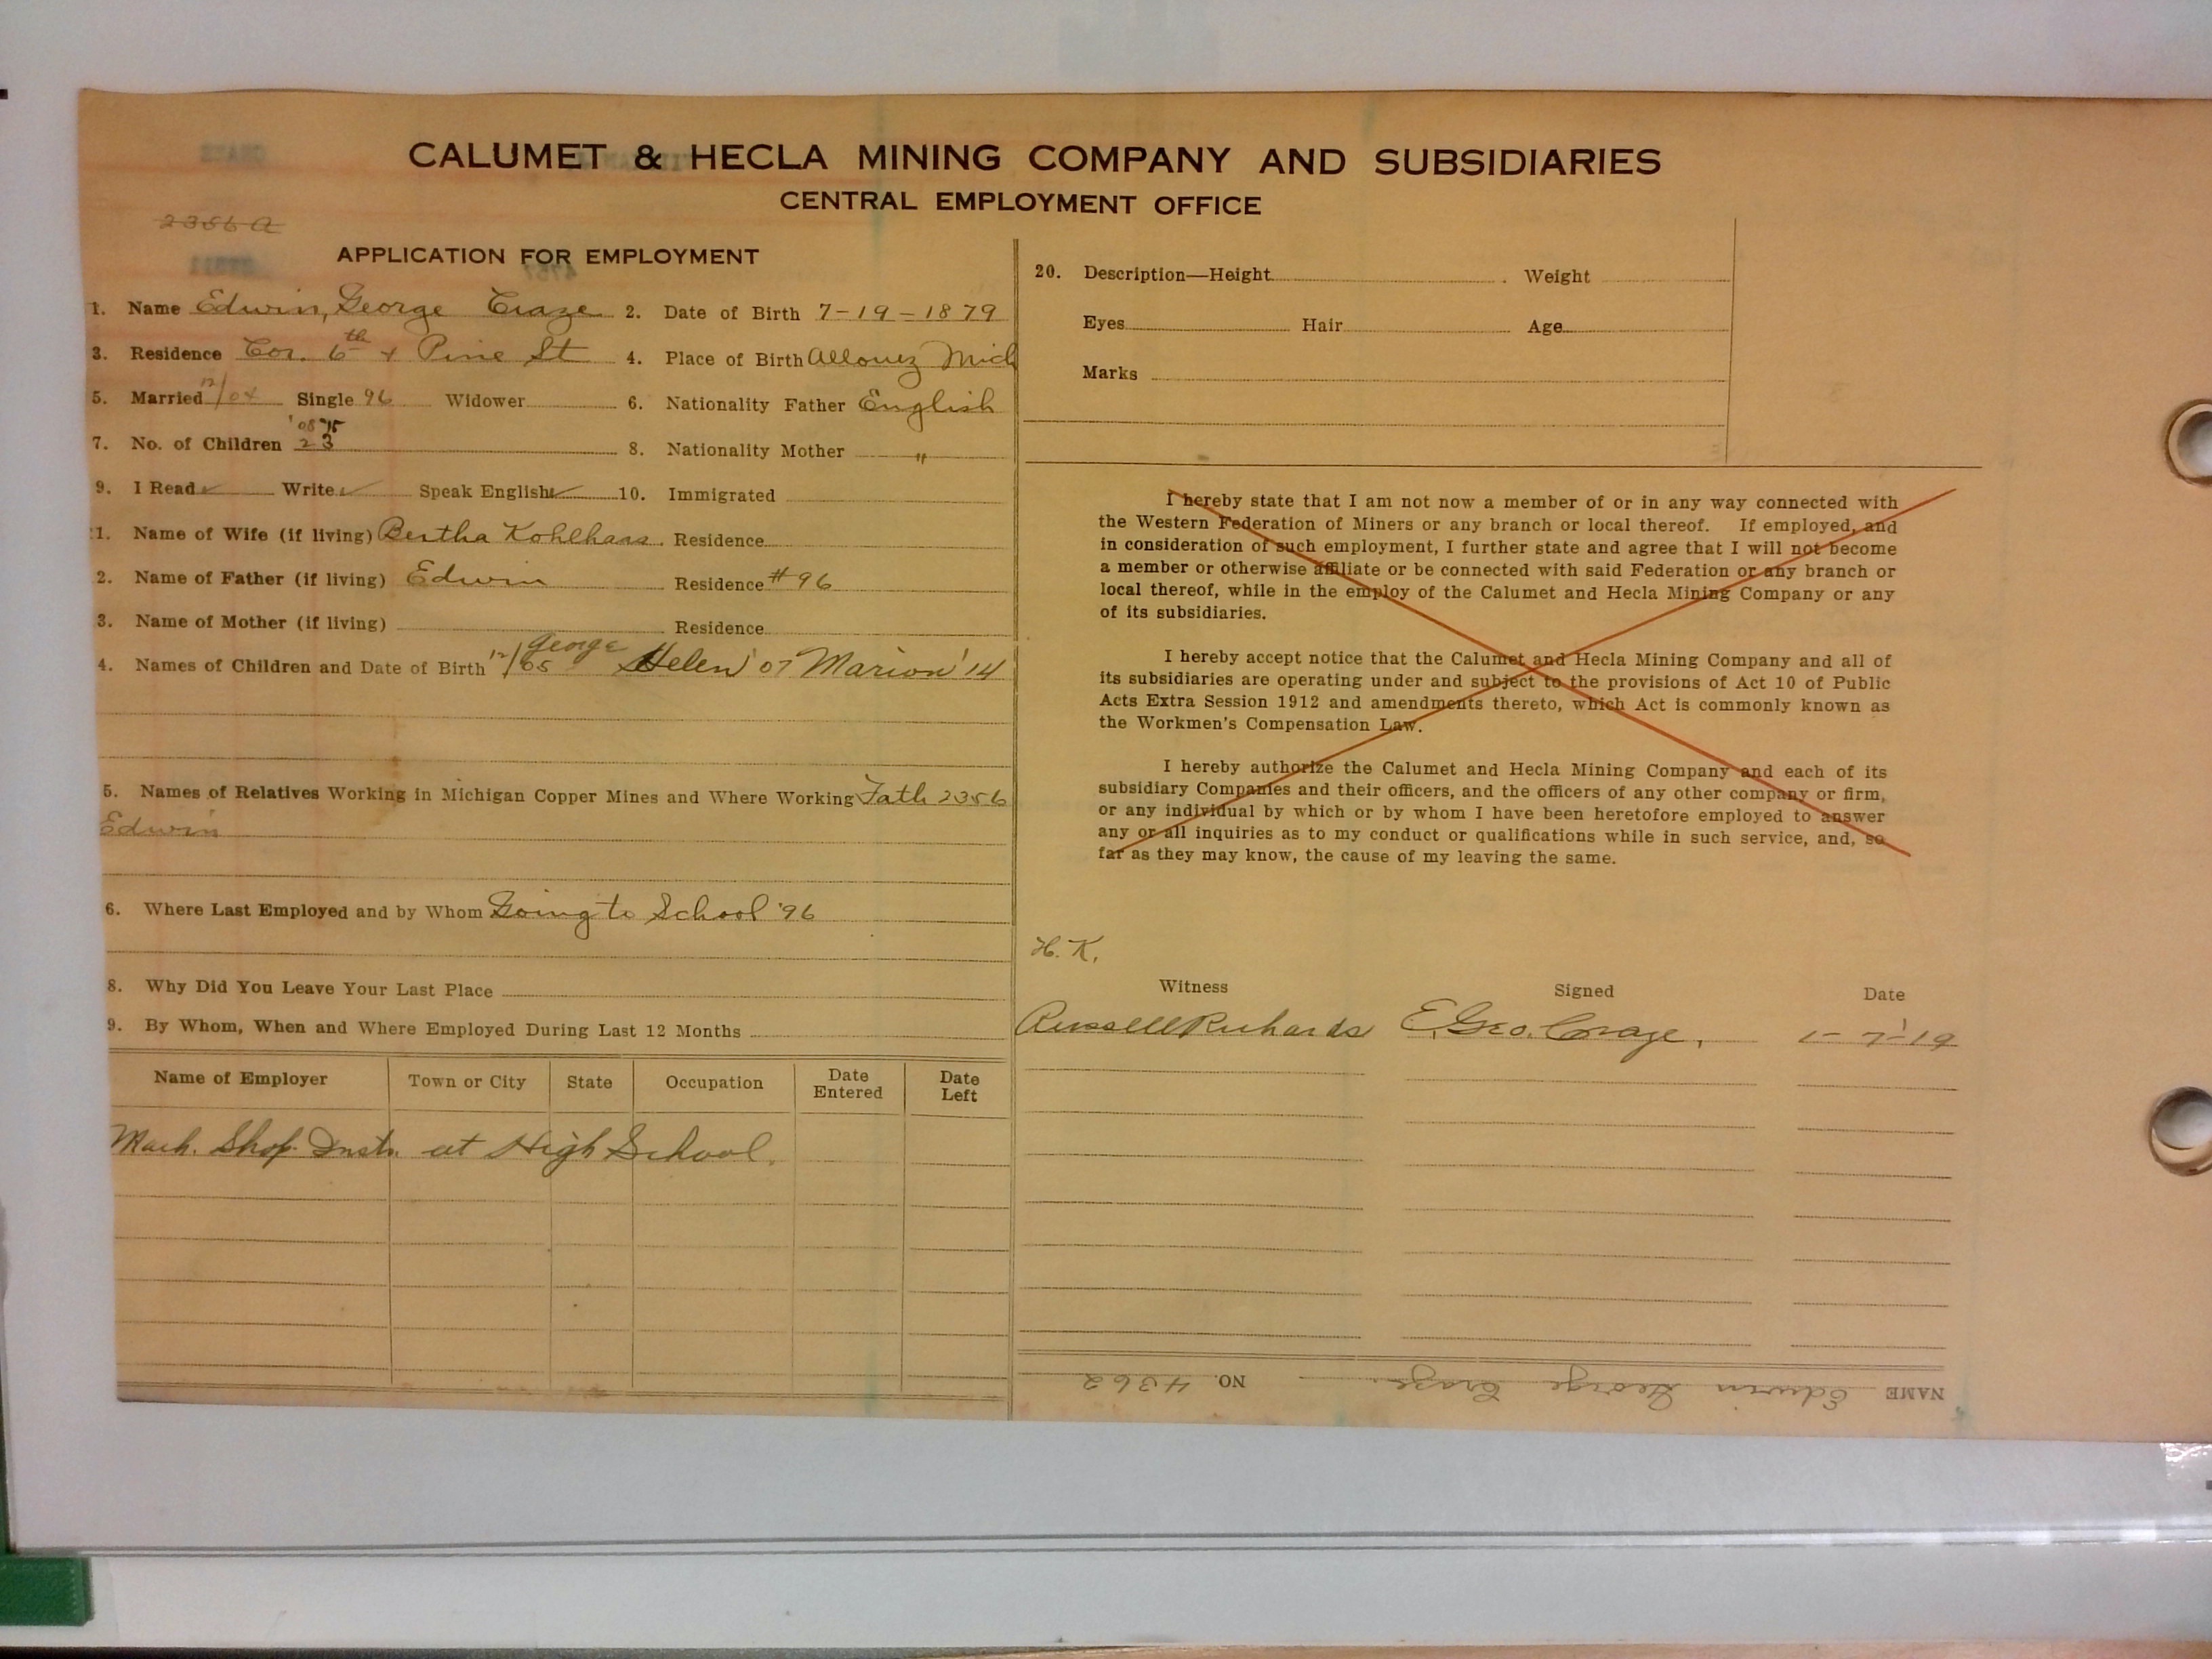 CALUMET & HECLA MINING COMPANY AND SUBSIDIARIES
CENTRAL EMPLOYMENT OFFICE
2356 a
APPLICATION FOR EMPLOYMENT
1. Name Edwin, George Craze 2. Date of Birth 7-19-1879
3. Residence Cor. 6th & Pine St 4. Place of Birth Allouez Mich
5. Married 12/04 Single 96 Widower 6. Nationality Father English
'08 '15
7. No. of Children 2 3 8. Nationality Mother "
9. I Read ✓ Write ✓ Speak English ✓ 10. Immigrated
1. Name of Wife (if living) Bertha Kohlhaas. Residence
2. Name of Father (if living) Edwin Residence #96
3. Name of Mother (if living) Residence
4. Names of Children and Date of Birth 12/05 George Helen '07 Marion '14
5. Names of Relatives Working in Michigan Copper Mines and Where Working Fath 2356
Edwin
6. Where Last Employed and by Whom Going to School '96
8. Why Did You Leave Your Last Place
9. By Whom, When and Where Employed During Last 12 Months
Name of Employer Town or City State Occupation Date Entered Date Left
Mach. Shop Instr. at High School.
20. Description—Height Weight
Eyes Hair Age
Marks
I hereby state that I am not now a member of or in any way connected with
the Western Federation of Miners or any branch or local thereof. If employed, and
in consideration of such employment, I further state and agree that I will not become
a member or otherwise affiliate or be connected with said Federation or any branch or
local thereof, while in the employ of the Calumet and Hecla Mining Company or any
of its subsidiaries.
I hereby accept notice that the Calumet and Hecla Mining Company and all of
its subsidiaries are operating under and subject to the provisions of Act 10 of Public
Acts Extra Session 1912 and amendments thereto, which Act is commonly known as
the Workmen's Compensation Law.
I hereby authorize the Calumet and Hecla Mining Company and each of its
subsidiary Companies and their officers, and the officers of any other company or firm,
or any individual by which or by whom I have been heretofore employed to answer
any or all inquiries as to my conduct or qualifications while in such service, and, so
far as they may know, the cause of my leaving the same.
H. K.
Witness Signed Date
Russell Richards E. Geo. Craze. 1-7-'19
NAME Edwin George Craze. NO. 4362